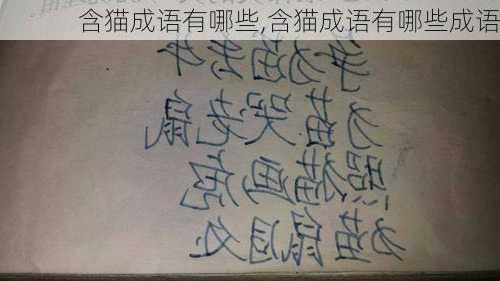 含猫成语有哪些,含猫成语有哪些成语
争猫丢牛
猫哭老鼠
照猫画虎
猫鼠同处